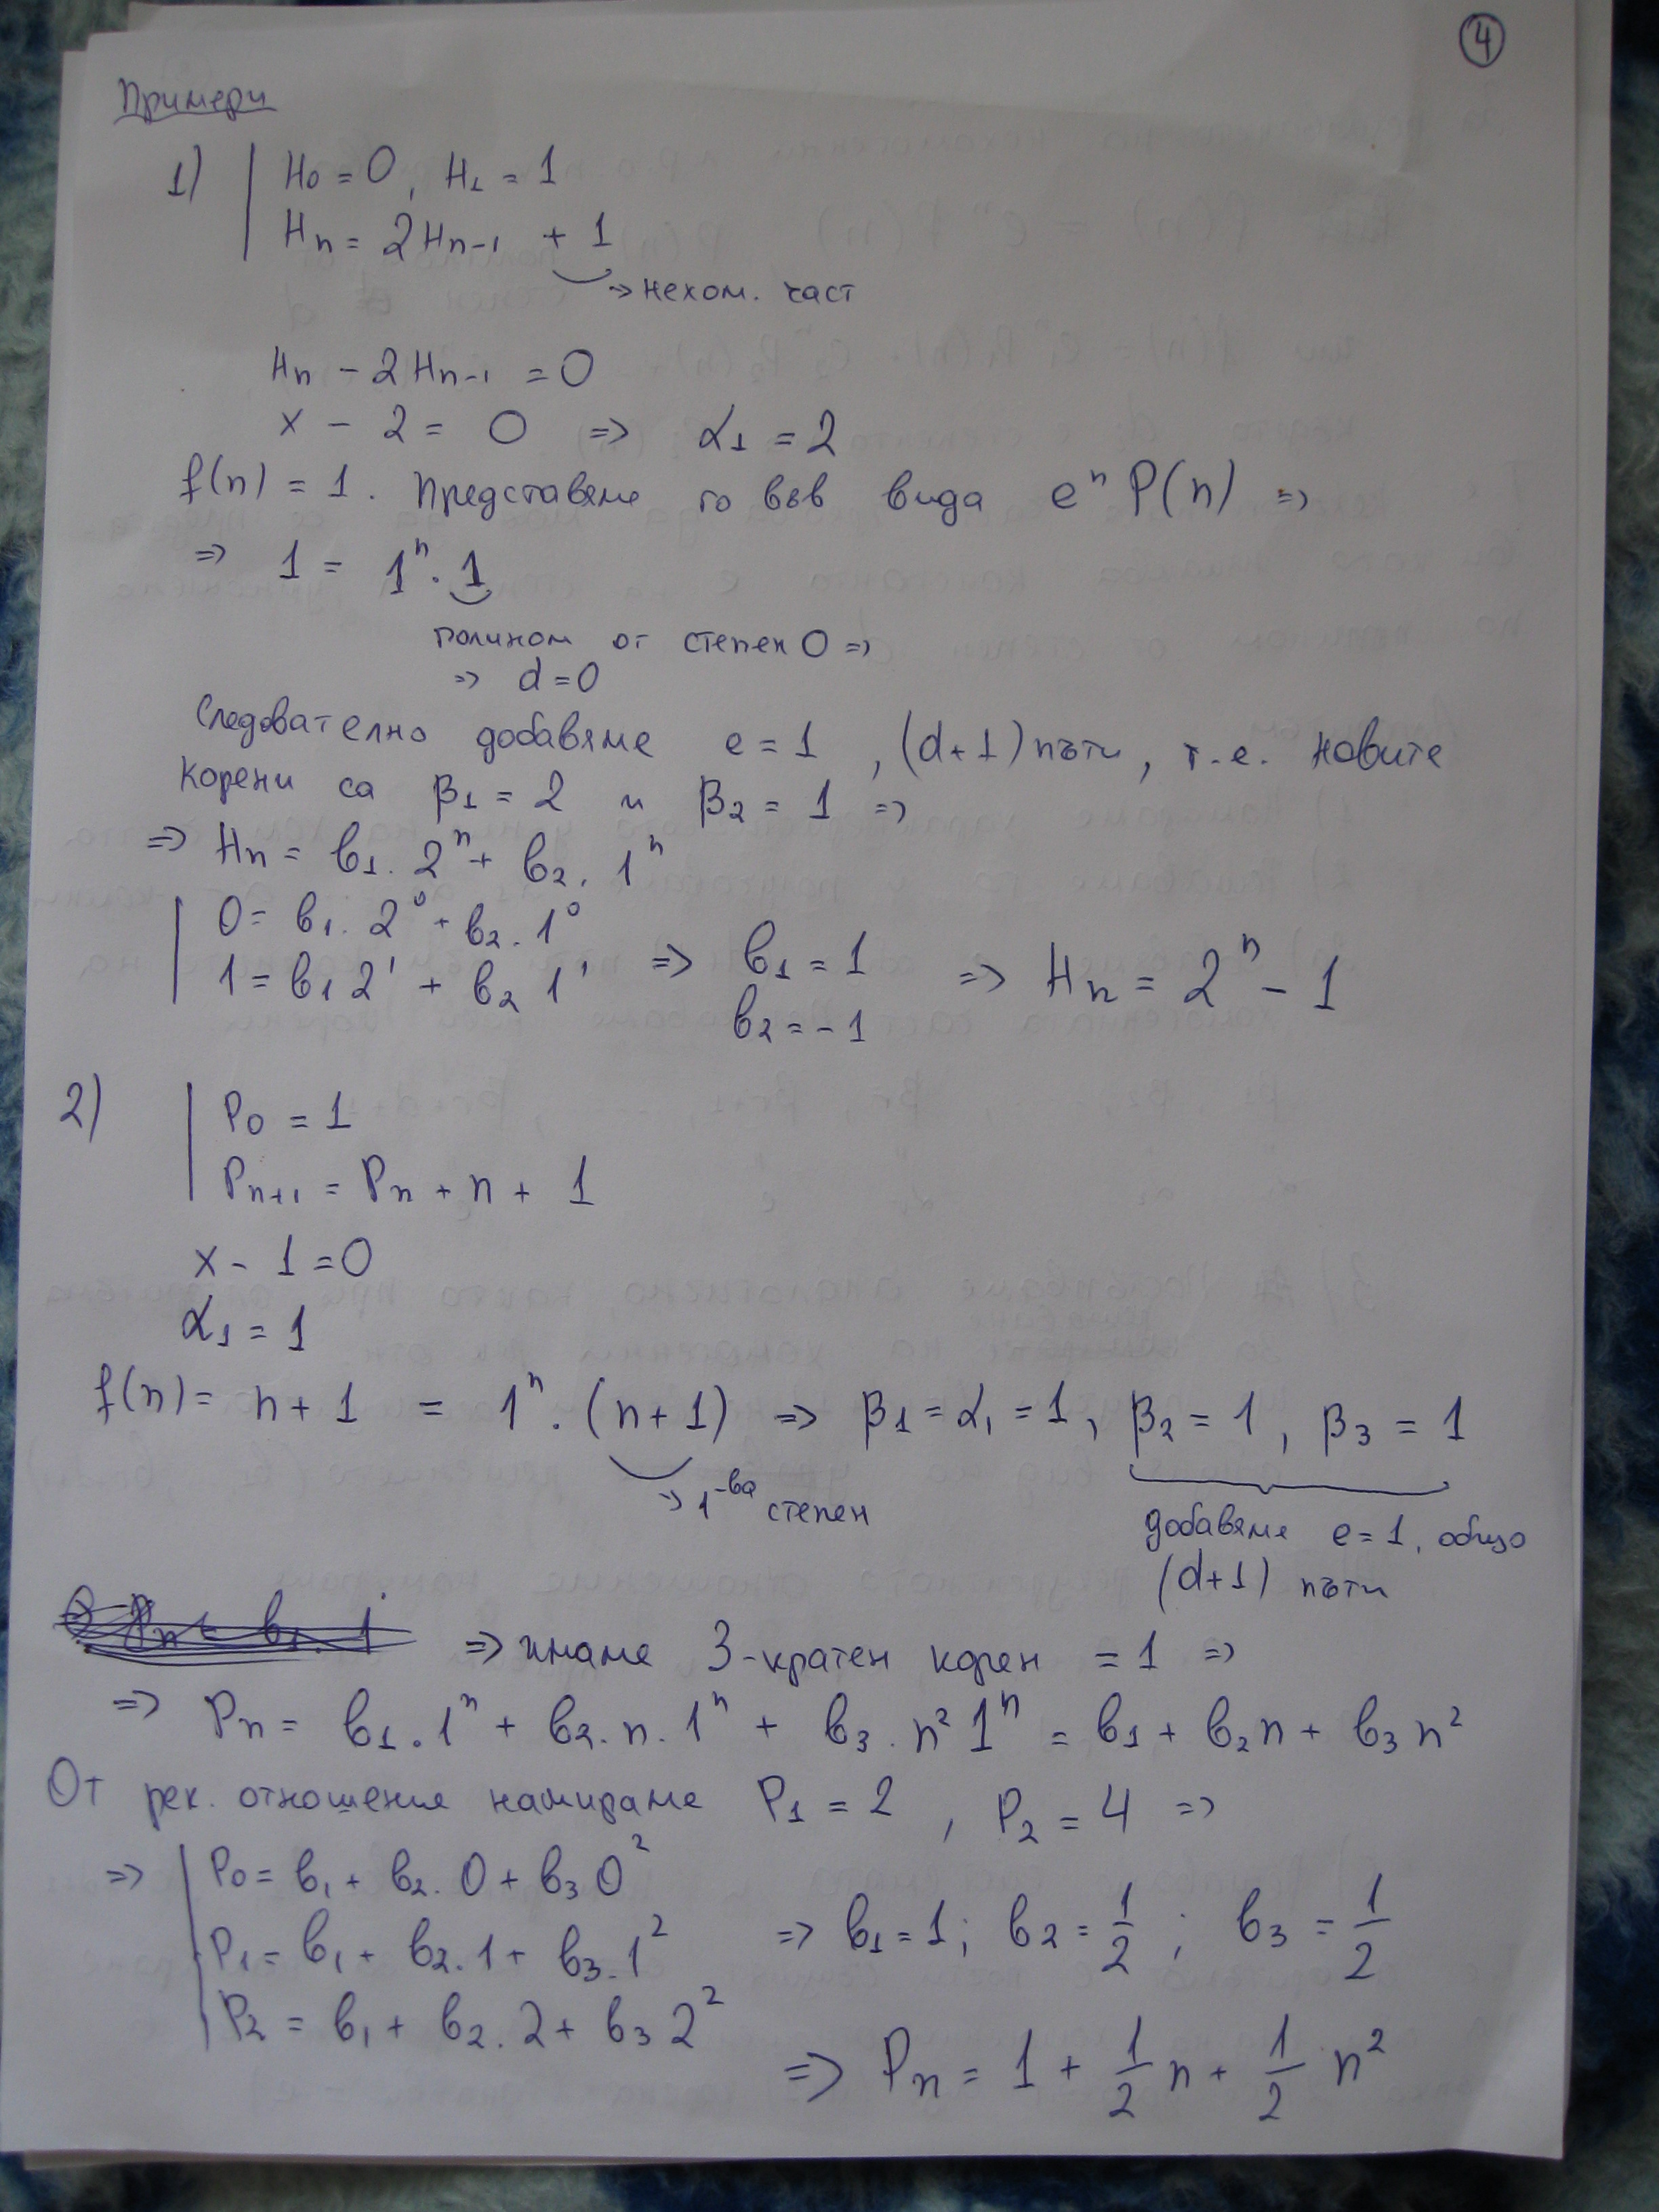 4
Примери
1) | H₀ = 0, H₁ = 1
Hₙ = 2Hₙ₋₁ + 1
→ нехом. част
Hₙ - 2Hₙ₋₁ = 0
x - 2 = 0 => α₁ = 2
f(n) = 1. Представяме го във вида eⁿ P(n) =>
=> 1 = 1ⁿ . 1
полином от степен 0 =>
=> d = 0
Следователно добавяме e = 1, (d+1) пъти, т.е. новите
корени са β₁ = 2 и β₂ = 1 =>
=> Hₙ = b₁. 2ⁿ + b₂. 1ⁿ
| 0 = b₁. 2⁰ + b₂. 1⁰
| 1 = b₁ 2¹ + b₂ 1¹ => b₁ = 1 => Hₙ = 2ⁿ - 1
b₂ = -1
2) | P₀ = 1
| Pₙ₊₁ = Pₙ + n + 1
x - 1 = 0
α₁ = 1
f(n) = n + 1 = 1ⁿ . (n+1) => β₁ = α₁ = 1, β₂ = 1, β₃ = 1
→ 1-ва степен
добавяме e = 1, общо
(d+1) пъти
=> имаме 3-кратен корен = 1 =>
=> Pₙ = b₁. 1ⁿ + b₂. n. 1ⁿ + b₃. n² 1ⁿ = b₁ + b₂n + b₃n²
От рек. отношение намираме P₁ = 2, P₂ = 4 =>
=> | P₀ = b₁ + b₂. 0 + b₃ 0²
| P₁ = b₁ + b₂. 1 + b₃. 1² => b₁ = 1; b₂ = 1/2; b₃ = 1/2
| P₂ = b₁ + b₂. 2 + b₃ 2²
=> Pₙ = 1 + 1/2 n + 1/2 n²